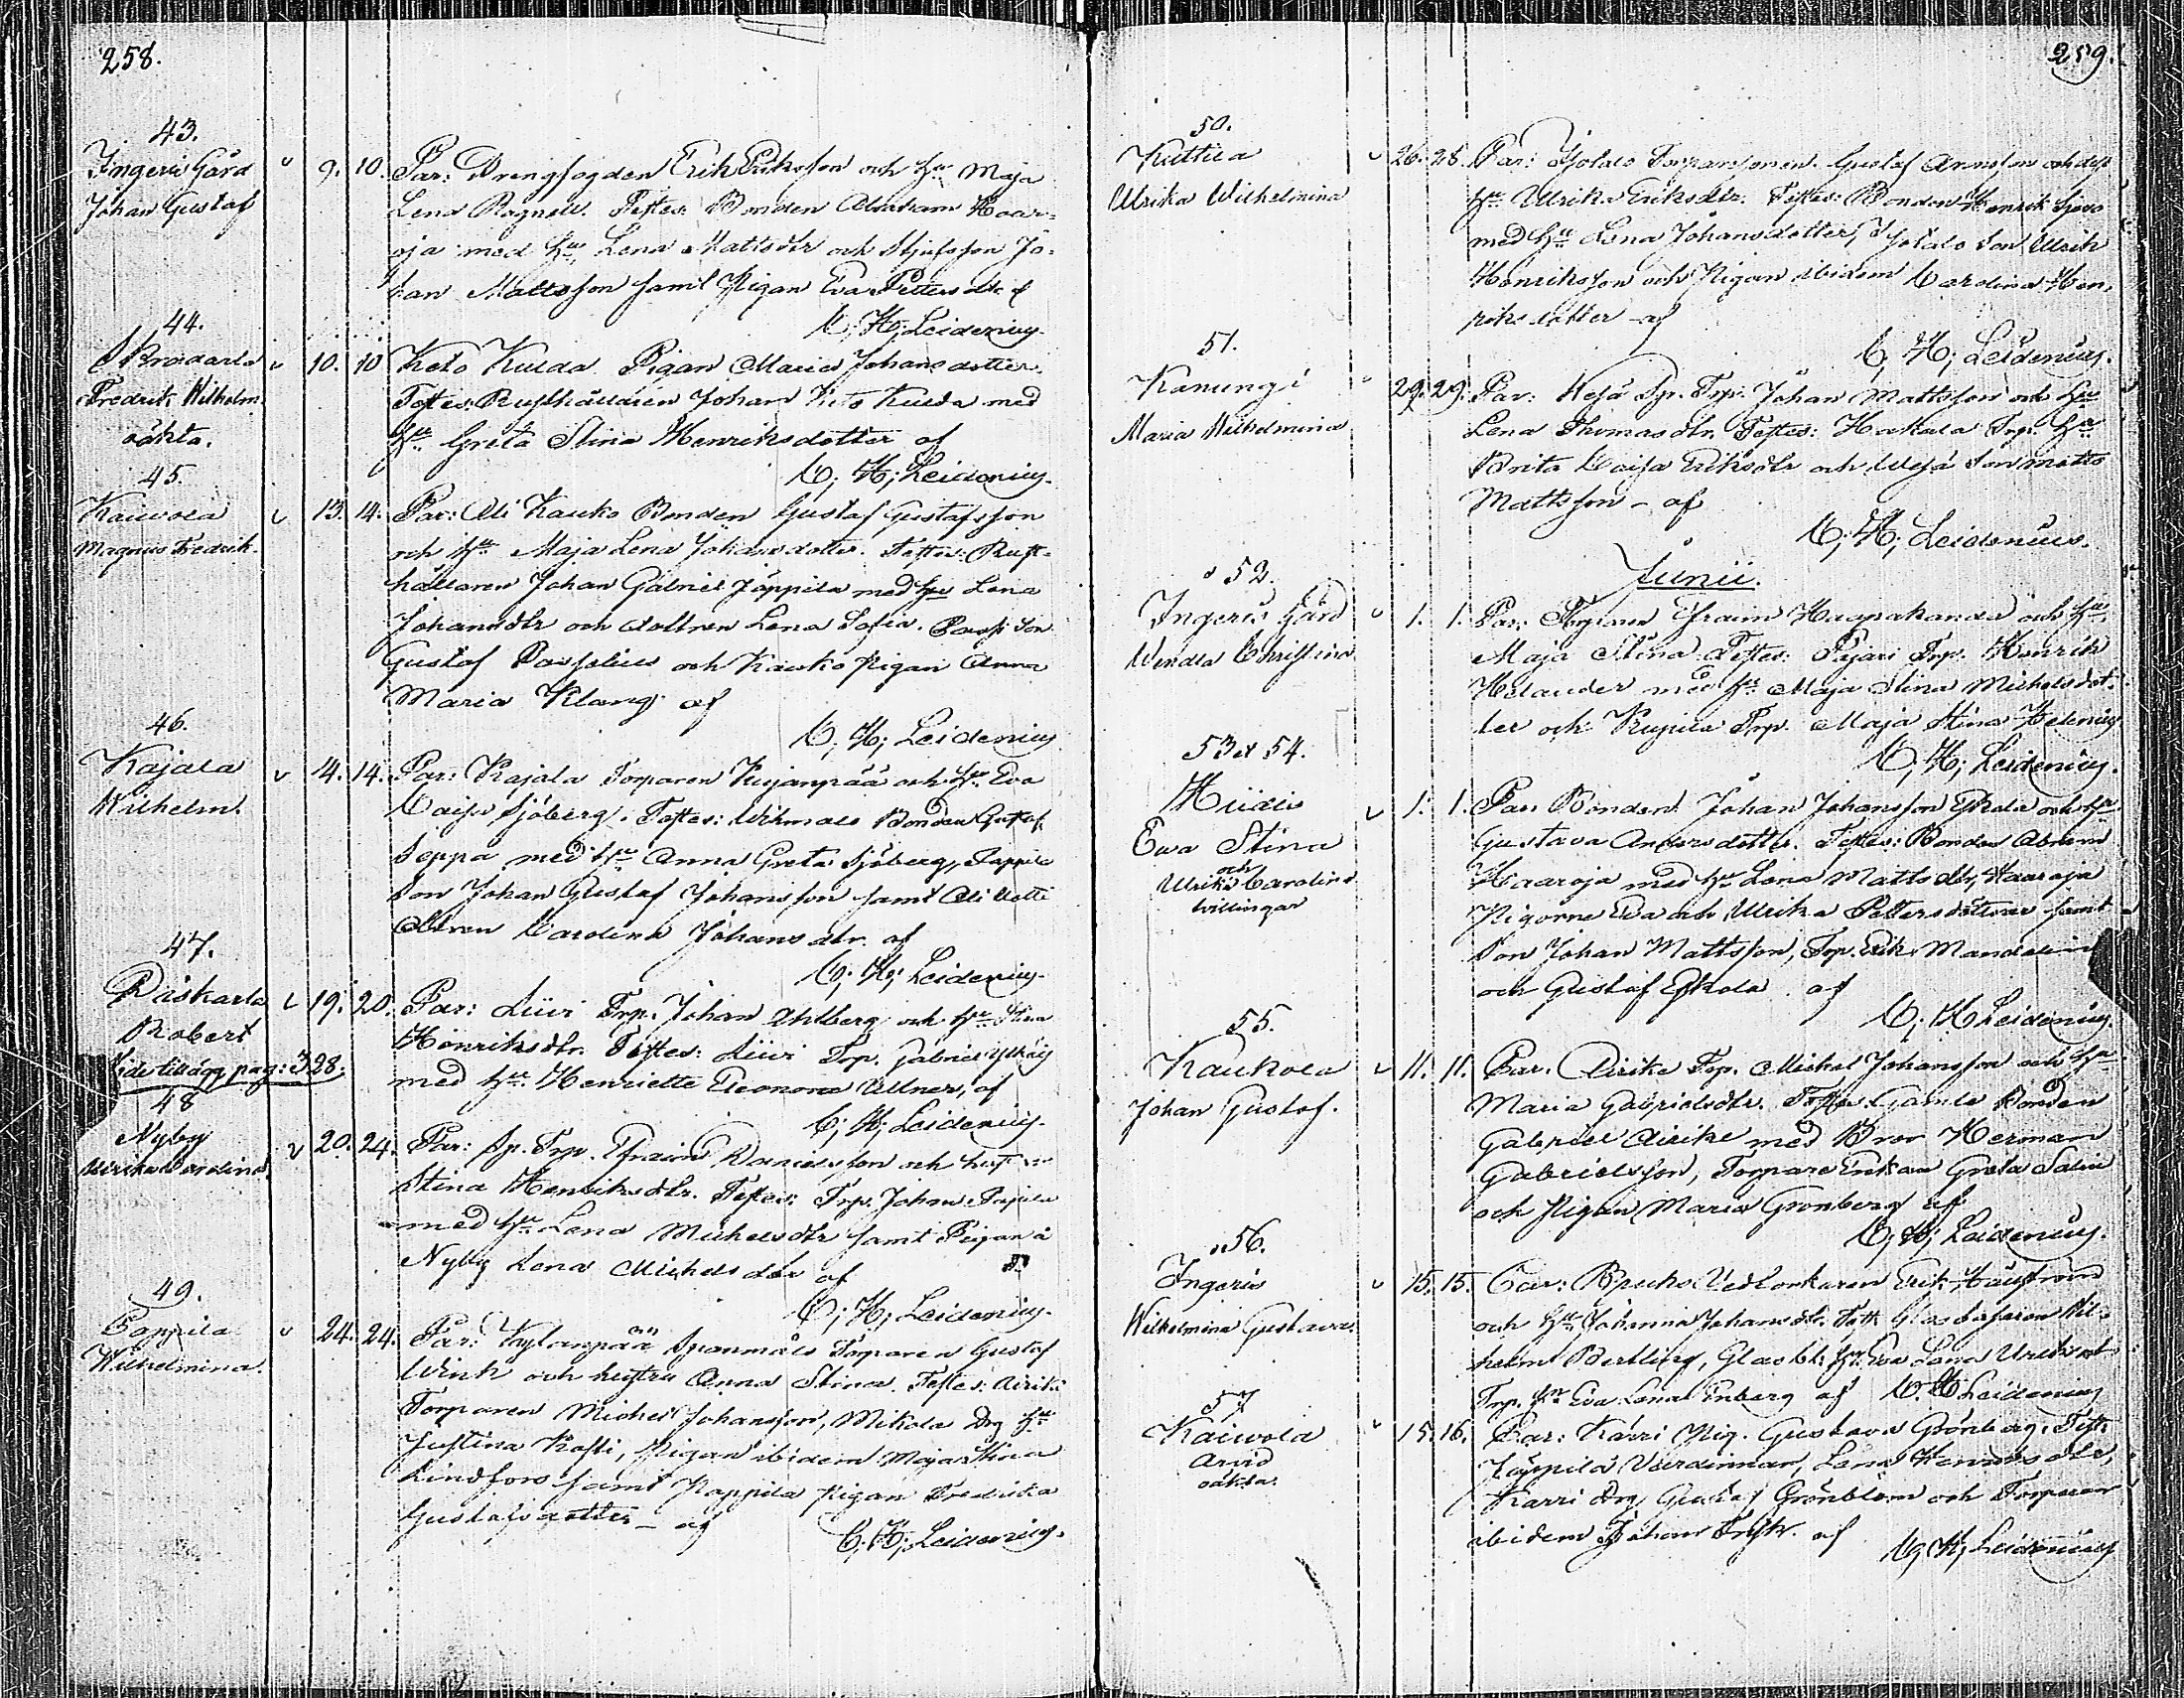 258.
43.
Ingeris Gård
Johan Gustaf
9. 10. Par: Drengfogden Erik Eriksson och Hu Maja
Lena Ragnell. Testes: Bonden Abraham Haar-
oja med Hu Lena Mattsdtr och Styfsson Jo-
han Mattsson samt Pigan Eva Pettersdtr af
C; H; Leidenius.
44.
Fredrik Wilhelm
oäkta.
10. 10 Keto Kulda Pigan Maria Johansdotter.
Testes: Rusthållaren Johan Keto Kulda med
Hu Greta Stina Henriksdotter af
C; H; Leidenius.
45.
Kaivola
Magnus Fredrik.
13. 14. Par: Ali Kauko Bonden Gustaf Gustafsson
och Hu Maja Lena Johansdotter. Testes: Rust-
hållaren Johan Gabriel Jäppilä med Hu Lena
Johansdtr och dottren Lena Sofia. Son
Gustaf och Kauko Pigan Anna
Maria Klang af
C; H; Leidenius
46.
Kajala
Wilhelm.
14. 14. Par: Kajala Torparen Kujanpää och Hu Eva
Caisa Sjöberg. Testes: Bonden Gustaf
Seppä med Hu Anna Greta Sjöberg,
Son Johan Gustaf Johansson samt
Carolina Johansdtr. af
C; H; Leidenius.
47.
Robert
Vide tillägg pag: 328.
19. 20. Par: Liivi Trp. Johan Ahlberg och Hu Stina
Henriksdtr. Testes: Liivi Trp. Gabriel
med Hu Henriette Eleonora Ullner, af
C; H; Leidenius.
48
Nyby
Ulrika Carolina.
20. 24. Par: Sp. Trp. Efraim Danielsson och hust
Stina Henriksdtr. Testes: Trp. Johan
med Hu Lena Michelsdtr samt Pigan å
Nyby Lena Michelsdtr af
C; H; Leidenius.
49.
Pappila
Wilhelmina.
24. 24. Par: Kylänpää Spanmåls Torparen Gustaf
Wink och hustru Anna Stina. Testes: Airiki
Torparen Michel Johansson, Mikola Drg Hu
Justina Kasti, Pigan ibidem Maja Stina
Lindfors samt Pappila Pigan Fredrika
Gustafsdotter – af
C; H; Leidenius.
259.
50.
Kuttila
Ulrika Wilhelmina
26. 28. Par: Torparsonen Gustaf och dess
Hu Ulrika Eriksdtr. Testes: Bonden Henrik
med Hu Lena Johansdotter, Son Ulrik
Henriksson och Pigan ibidem Carolina Hen-
riksdotter – af
C; H; Leidenius.
51.
Kanungi
Maria Wilhelmina
29. 29. Par: Sp. Trp. Johan Mattsson och Hu
Lena Thomasdtr. Testes: Hakala Trp. Hu
Brita Caisa Eriksdtr och Son Matts
Mattsson – af
C; H; Leidenius.
Junii.
52.
Ingeris Gård
Wendla Christina
1. 1. Par: Torparen Efraim Haapakanda och Hu
Maja Stina. Testes: Pajari Trp. Henrik
Helander med Hu Maja Stina Michelsdot-
ter och Trp. Maja Stina Helenius
C; H; Leidenius.
53 et 54.
Hiidis
Ewa Stina
och
Ulrika Carolina
tvillingar
1. 1. Par: Bonden Johan Johansson Eskola och Hu
Gustava Andersdotter. Testes: Bonden Abram
Haaroja med Hu Lena Mattsdtr, Haaroja
Pigorne Eva och Ulrika Pettersdöttrar samt
Son Johan Mattsson, Trp. Erik Mandelin
och Gustaf Eskola af
C; H Leidenius
55.
Kaukola
Johan Gustaf.
11. 11. Par. Airiki Trp. Michel Johansson och Hu
Maria Gabrielsdtr. Testes: Gamle Bonden
Gabriel Airiki med Bror Herman
Gabrielsson, Torpare Enkan Greta Salin
och Pigan Maria Grönberg af
C; H; Leidenius.
56.
Ingeris
Wilhelmina Gustava.
15. 15. Par: Bruks Erik
och Hu Johanna Johansdtr. Test: Glasblåsaren Wil-
helm Bertling, Glasbl: Hu Eva Lena
Trp. Hu Eva Lena Enberg af C. H Leidenius
57
Kaivola
Arvid
oäkta.
15. 16. Par: Karri Pig. Gustava Grönberg. Test:
Jäppilä Värdinnan, Lena Henriksdtr,
Karri Drg Gustaf Grönblom och Torparen
ibidem Johan af
C; H; Leidenius